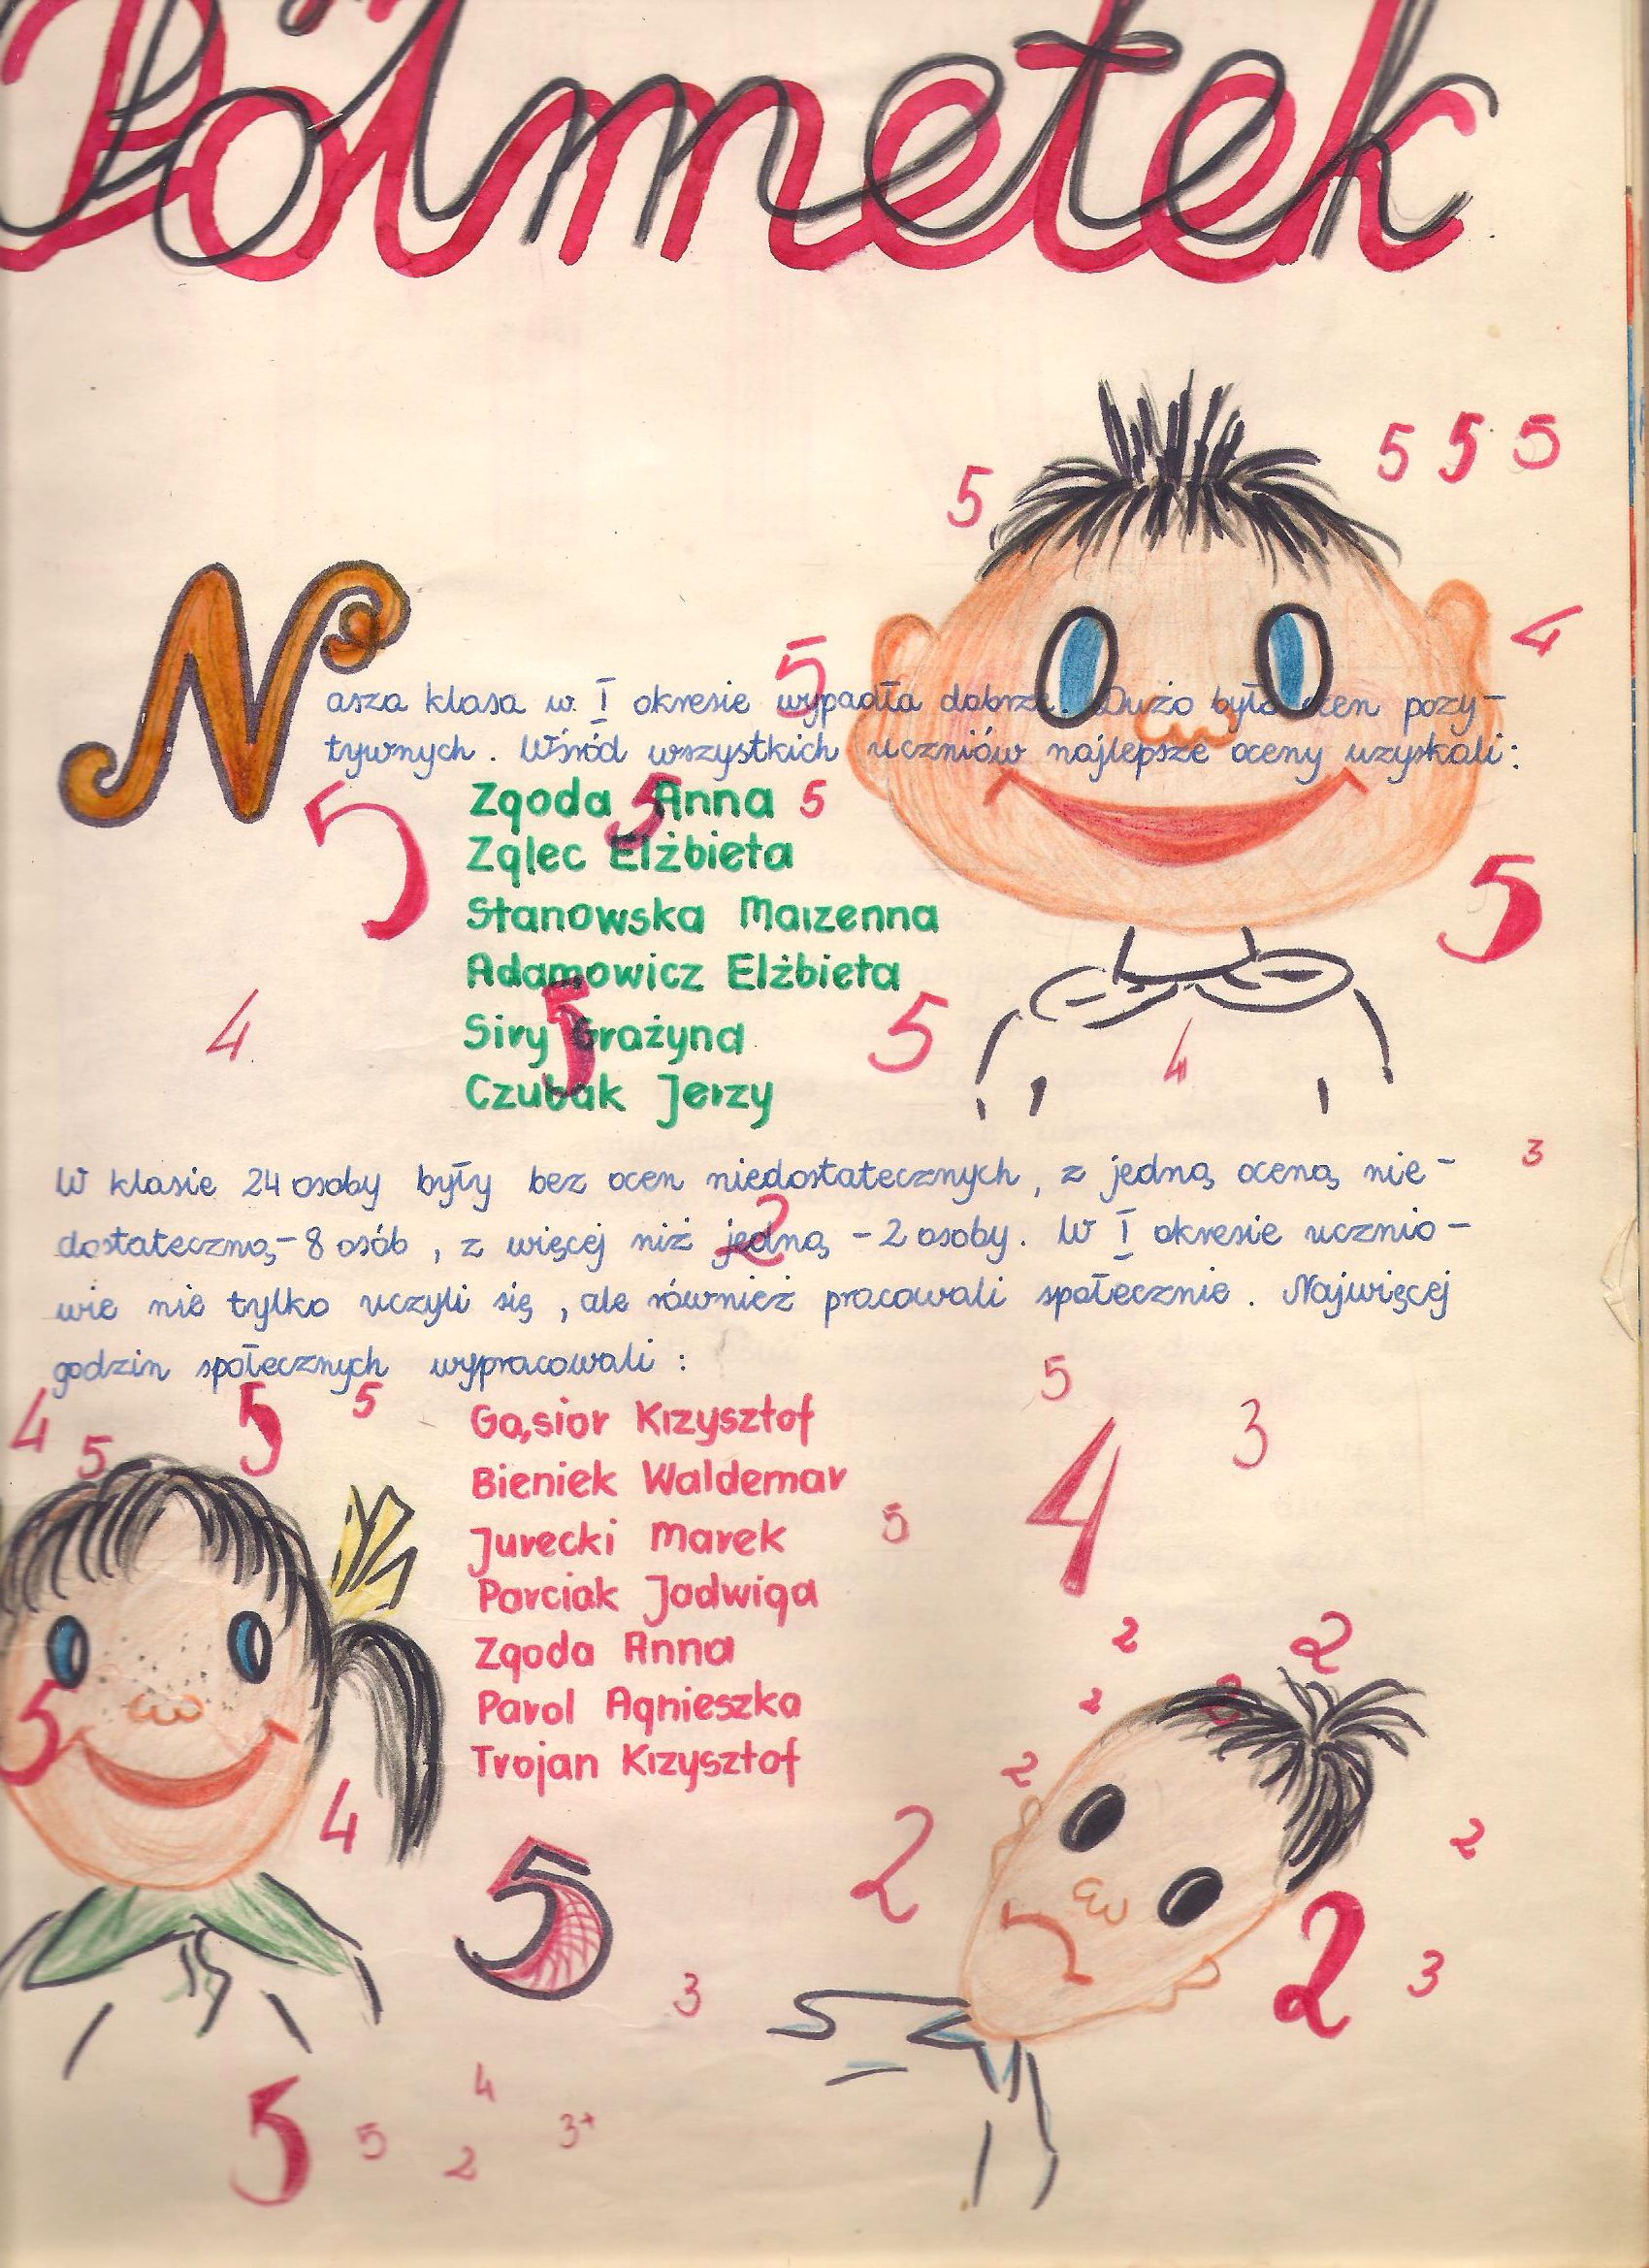 Półmetek
5 5 5
5
4
5
Nasza klasa w I okresie wypadła dobrze. Dużo było ocen pozy-
tywnych. Wśród wszystkich uczniów najlepsze oceny uzyskali:
Zgoda Anna 5
5
5
Zglec Elżbieta
5
Stanowska Marzenna
Adamowicz Elżbieta
Siry Grażyna
5
5
4
4
Czubak Jerzy
3
W klasie 24 osoby były bez ocen niedostatecznych, z jedną oceną nie-
dostateczną - 8 osób, z więcej niż jedną - 2 osoby. W I okresie ucznio-
2
wie nie tylko uczyli się, ale również pracowali społecznie. Najwięcej
godzin społecznych wypracowali:
4
5
5
5
5
3
Gąsior Krzysztof
Bieniek Waldemar
4
Jurecki Marek
5
Parciak Jadwiga
Zgoda Anna
2
2
Parol Agnieszka
2
2
5
Trojan Krzysztof
2
4
2
2
5
2
3
3
5
4
5
2
3+